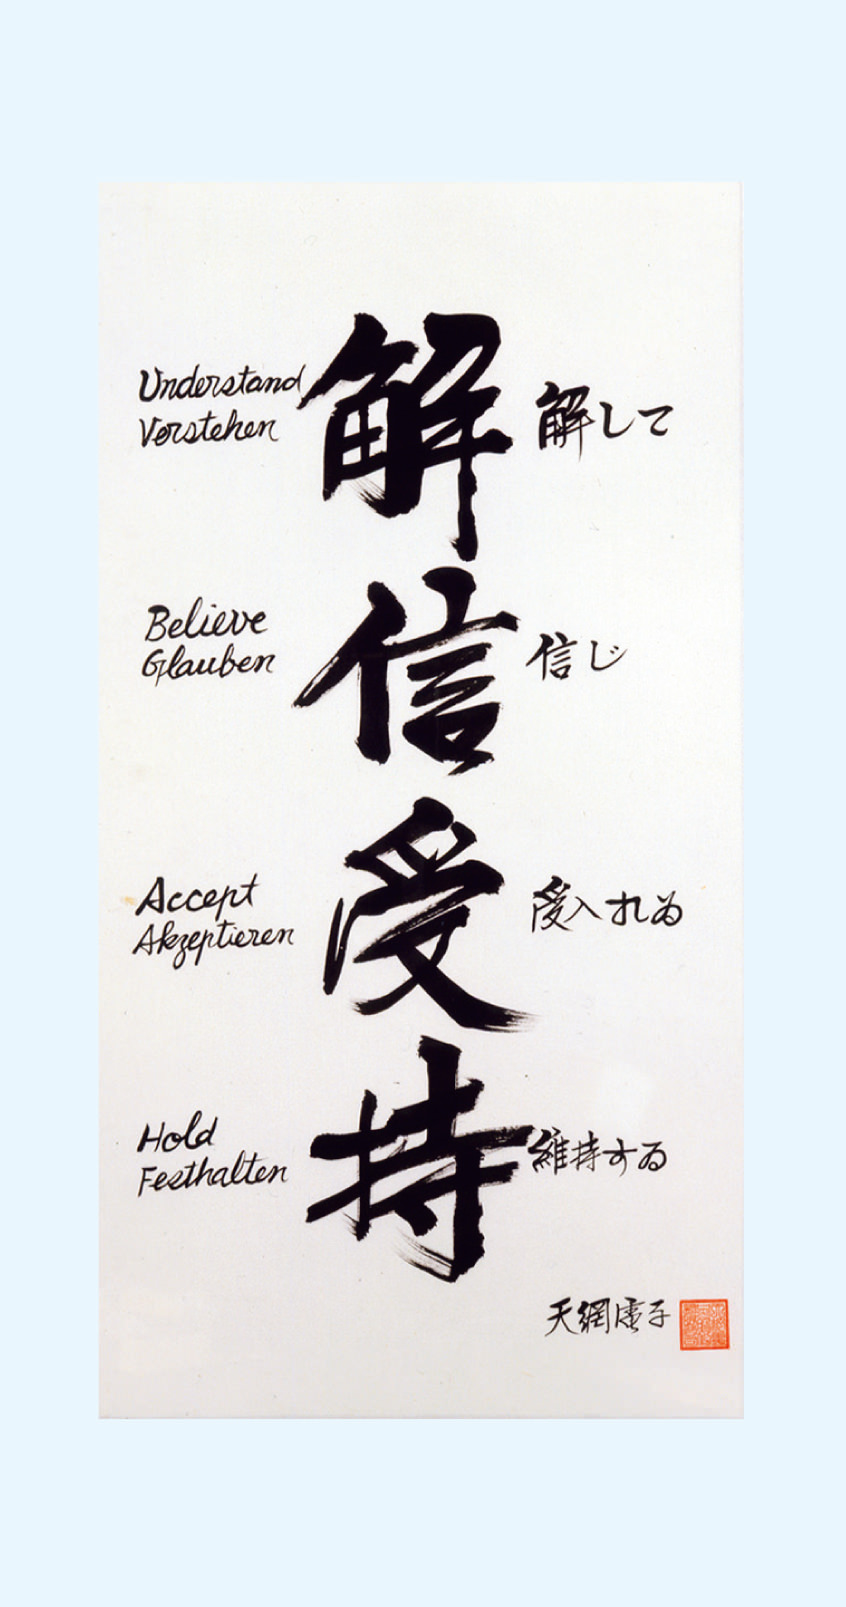 Understand
Verstehen
解
解して
Believe
Glauben
信
信じ
Accept
Akzeptieren
受
受入れる
Hold
Festhalten
持
維持する
天網虚子